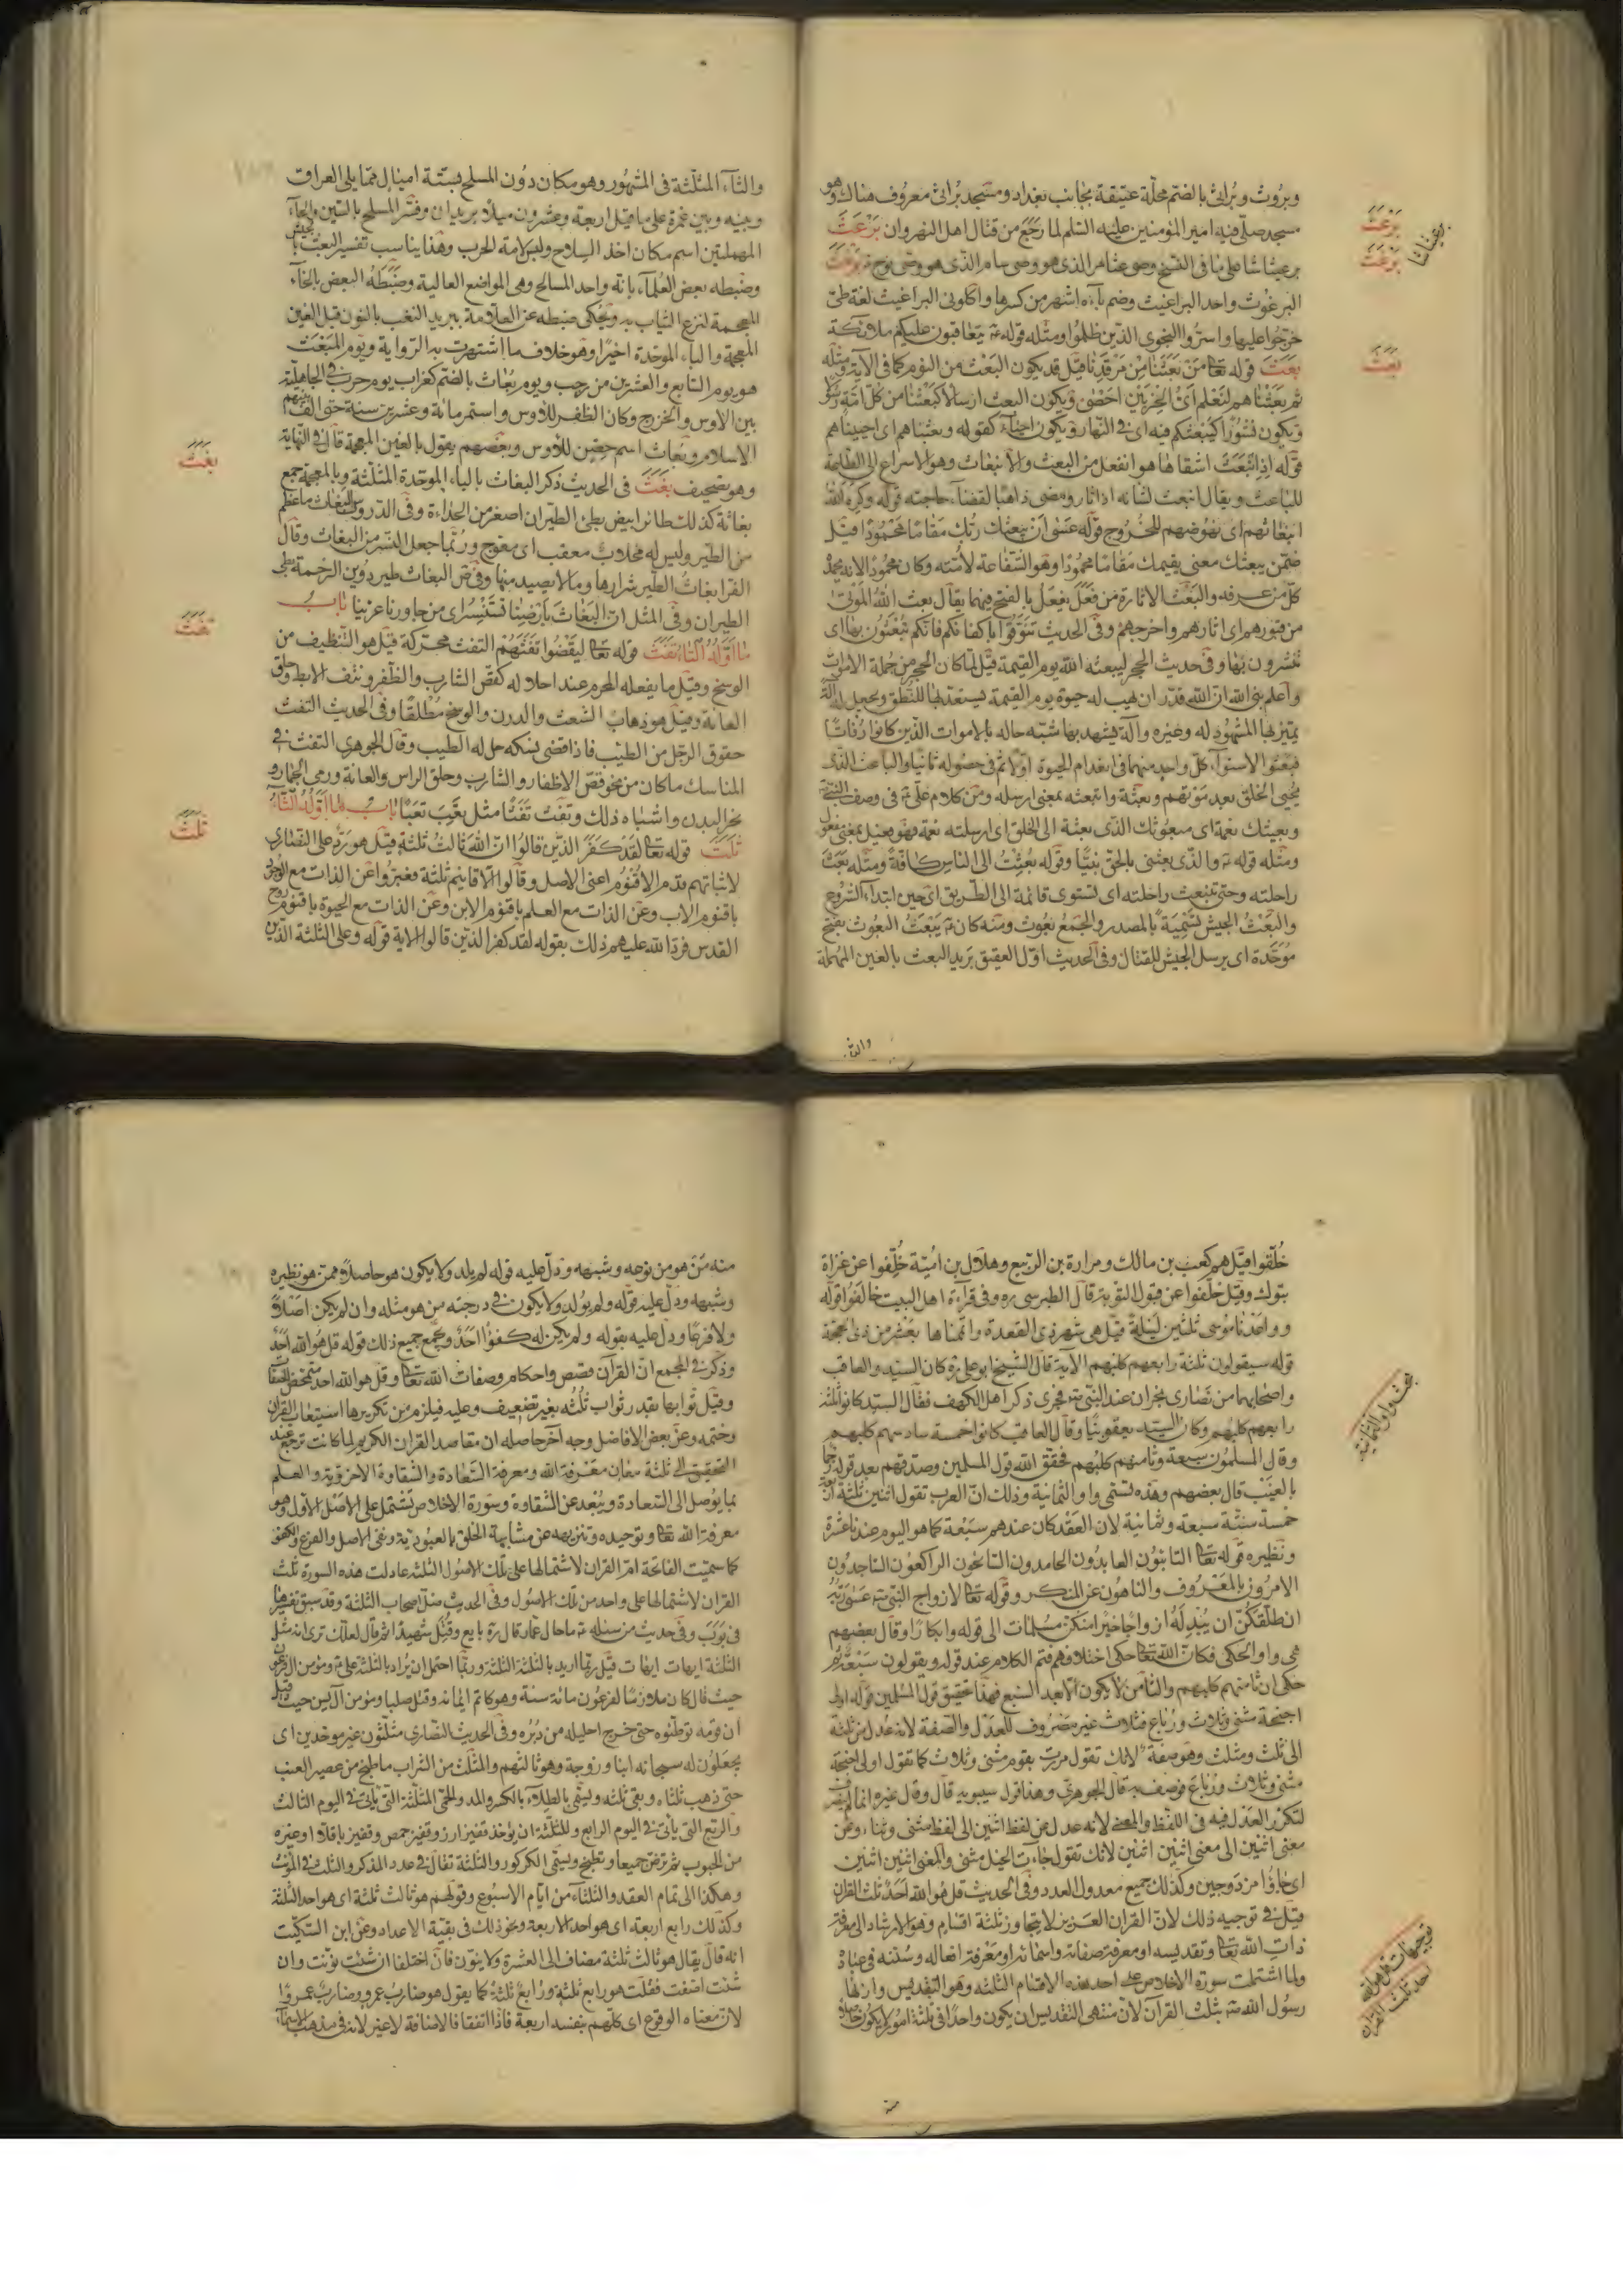 وبروث وبراثى بالضم محلة عتيقة بجانب بغداد ومسجد براثى معروف هناك وهو
مسجد صلى فيه امير المؤمنين عليه السلم لما رجع من قتال اهل النهروان برعث
برعيثاشا على ما فى النسخ وصى عثامر الذى هو وصى سام الذى هو وصى نوح برغث
البرغوث واحد البراغيث وضم بآءه اشهر من كسرها واكلونى البراغيث لغة طىّ
خرجوا عليها واسرّوا النجوى الذين ظلموا ومثله قوله يتعاقبون عليكم ملائكة
بعث قوله تعا من بعثنا من مرقدنا قيل قد يكون البعث من النوم كما فى الآية ومثله
ثم بعثناهم لنعلم اىّ الحزبين احصى ويكون البعث ارسالا كبعثنا من كل امة رسولا
ويكون نشورا كيبعثكم فيه اى فى النهار ويكون احياء كقوله وبعثناهم اى احييناهم
قوله اذ انبعث اشقاها هو انفعل من البعث والانبعاث وهو الاسراع الى الطاعة
للباعث ويقال انبعث لشانه اذا ثار ومضى ذاهبا لقضآء حاجته قوله وكره الله
انبعاثهم اى نهوضهم للخروج قوله عسى ان يبعثك ربّك مقاما محمودا قيل
ضمّن يبعثك معنى يقيمك مقاما محمودا وهو الشفاعة لامّته وكان محمودا لانه يحمده
كل من عرفه والبعث الاثارة من فعل يفعل بالفتح فيهما يقال بعث الله الموتى
من قبورهم اى اثارهم واخرجهم وفى الحديث تنوقوا باكفانكم فانكم تبعثون بها اى
تنشرون بها وفى حديث الحجر ليبعثه الله يوم القيمة قيل لما كان الحجر من جملة الاموات
واعلم نبى الله ان الله قدّر ان يهب له حيوة يوم القيمة يستعد بها للنطق ويجعل له آلة
يتميز بها المشهود له وغيره وآلة يشهد بها شبّه حاله بالاموات الذين كانوا رفاتا
فبعثوا لاستوآء كل واحد منهما فى انعدام الحيوة اولا ثم فى حصوله ثانيا والباعث الذى
يحيى الخلق بعد موتهم وبعثه وابتعثه بمعنى ارسله ومن كلام على فى وصف النبى
وبعيثك نعمة اى مبعوثك الذى بعثته الى الخلق اى ارسلته نعمة فهو فعيل بمعنى مفعول
ومثله قوله والذى بعثنى بالحق نبيّا وقوله بعثت الى الناس كافة ومثله بعث
راحلته وحتى تنبعث راحلته اى تستوى قائمة الى الطريق اى حين ابتدآء الشروع
والبعث الجيش تسمية بالمصدر والجمع بعوث ومنه كان يبعث البعوث بفتح
موحّدة اى يرسل الجيش للقتال وفى الحديث اوّل العقيق بريد البعث بالعين المهملة
والثآء
برعث
برغث
برعيثاشا
بعث
والثآء المثلثة فى المشهور وهو مكان دون المسلح بستة اميال مما يلى العراق
وبينه وبين غمرة على ما قيل اربعة وعشرون ميلا بريدان وفسّر المسلح بالسين والحآء
المهملتين اسم مكان اخذ السلاح ولبس لامة الحرب وهذا يناسب تفسير البعث بالجيش
وضبطه بعض العلمآء بانه واحد المسالح وهى المواضع العالية وضبطه البعض بالخآء
المعجمة لنزع الثياب به ويحكى ضبطه عن العلامة ببريد النغب بالنون قبل الغين
المعجمة والبآء الموحدة اخيرا وهو خلاف ما اشتهرت به الرواية ويوم المبعث
هو يوم السابع والعشرين من رجب ويوم بعاث بالضم كغراب يوم حرب فى الجاهلية
بين الاوس والخزرج وكان الظفر للاوس واستمر مائة وعشرين سنة حتى الّف بينهم
الاسلام وبعاث اسم حصن للاوس وبعضهم يقول بالغين المعجمة قال فى النهاية
وهو تصحيف بغث فى الحديث ذكر البغاث بالبآء الموحدة المثلثة وبالمعجمة جمع
بغاثة كذلك طائر ابيض بطئ الطيران اصغر من الحداءة وفى الدروس البغاث ما عظم
من الطير وليس له مخلاب معقب اى معوج وربما جعل النسر من البغاث وقال
الفرا بغاث الطير شرارها وما لا يصيد منها وفى ض البغاث طير دوين الرخمة بطئ
الطيران وفى المثل ان البغاث بارضنا تستنسر اى من جاورنا عز بنا باب
ما اوّله التاء تفث قوله تعا ليقضوا تفثهم التفث محركة قيل هو التنظيف من
الوسخ وقيل ما يفعله المحرم عند احلاله كقص الشارب والظفر ونتف الابط وحلق
العانة وقيل هو ذهاب الشعث والدرن والوسخ مطلقا وفى الحديث التفث
حقوق الرجل من الطيب فاذا قضى نسكه حل له الطيب وقال الجوهرى التفث فى
المناسك ما كان من نحو قص الاظفار والشارب وحلق الراس والعانة ورمى الجمار و
نحر البدن واشباه ذلك وتفث تفثا مثل تعب تعبا باب ما اوله الثآء
ثلث قوله تعا لقد كفر الذين قالوا ان الله ثالث ثلثة قيل هو ردّ على النصارى
لاثباتهم قدم الاقنوم اعنى الاصل وقالوا الاقانيم ثلثة فعبّروا عن الذات مع الوجود
باقنوم الاب وعن الذات مع العلم باقنوم الابن وعن الذات مع الحيوة باقنوم روح
القدس فردّ الله عليهم ذلك بقوله لقد كفر الذين قالوا الاية قوله وعلى الثلثة الذين
بغث
تفث
ثلث
خلّفوا قيل هم كعب بن مالك ومرارة بن الربيع وهلال بن اميّة خلّفوا عن غزاة
تبوك وقيل خلّفوا عن قبول التوبة قال الطبرسى ره وفى قرآءة اهل البيت خالفوا قوله
وواعدنا موسى ثلثين ليلة قيل هى شهر ذى القعدة واتمناها بعشر من ذى الحجة
قوله سيقولون ثلثة رابعهم كلبهم الآية قال الشيخ ابو على ره كان السيد والعاقب
واصحابهما من نصارى نجران عند النبى فجرى ذكر اهل الكهف فقال السيد كانوا ثلثة
رابعهم كلبهم وكان السيد يعقوبيّا وقال العاقب كانوا خمسة سادسهم كلبهم
وقال المسلمون سبعة وثامنهم كلبهم فحقّق الله قول المسلمين وصدّقهم بعد قوله رجما
بالغيب قال بعضهم وهذه تسمى واو الثمانية وذلك ان العرب تقول اثنين ثلثة اربعة
خمسة ستة سبعة وثمانية لان العقد كان عندهم سبعة كما هو اليوم عندنا عشرة
ونظيره قوله تعا التائبون العابدون الحامدون السائحون الراكعون الساجدون
الامرون بالمعروف والناهون عن المنكر وقوله تعا لازواج النبى عسى ربه
ان طلّقكنّ ان يبدله ازواجا خيرا منكنّ مسلمات الى قوله وابكارا وقال بعضهم
هى واو الحكى فكانّ الله تعا حكى اختلافهم فتم الكلام عند قوله ويقولون سبعة ثم
حكى ان ثامنهم كلبهم والثامن لا يكون الا بعد السبع فهذا تحقيق قول المسلمين قوله اولى
اجنحة مثنى وثلاث ورباع فثلاث غير مصروف للعدل والصفة لانه عدل من ثلثة
الى ثلث ومثلث وهو صفة لانك تقول مررت بقوم مثنى وثلاث كما تقول اولى اجنحة
مثنى وثلاث ورباع فوصف به قال الجوهرى وهذا قول سيبويه قال وقال غيره انما لم ينصرف
لتكرر العدل فيه فى اللفظ والمعنى لانه عدل عن لفظ اثنين الى لفظ مثنى وثناء وعن
معنى اثنين الى معنى اثنين اثنين لانك تقول جاءت الخيل مثنى والمعنى اثنين اثنين
اى جاؤا مزدوجين وكذلك جميع معدول العدد وفى الحديث قل هو الله احد ثلث القران
قيل فى توجيه ذلك لان القران العزيز لا يتجاوز ثلثة اقسام وهو الارشاد الى معرفة
ذات الله تعا وتقديسه او معرفة صفاته واسمائه او معرفة افعاله وسنّته فى عباده
ولما اشتملت سورة الاخلاص على احد هذه الاقسام الثلثة وهو التقديس وازنها
رسول الله بثلث القرآن لان منتهى التقديس ان يكون واحدا فى ثلثة امور لا يكون حاصلا
منه
بحث واو الثمانية
توجيهات قل هو الله
احد ثلث القران
منه من هو من نوعه وشبهه ودلّ عليه قوله لم يلد ولا يكون هو حاصلا ممن هو نظيره
وشبهه ودل عليه قوله ولم يولد ولا يكون فى درجته من هو مثله وان لم يكن اصلا
ولا فرعا ودل عليه بقوله ولم يكن له كفوا احد ويجمع جميع ذلك قوله قل هو الله احد
وذكر فى المجمع ان القرآن قصص واحكام وصفات الله تعا وقل هو الله احد متمحض للصفات
وقيل ثوابها بقدر ثواب ثلثه بغير تضعيف وعليه فيلزم من تكريرها استيعاب القران
وختمه وعن بعض الافاضل وجه آخر حاصله ان مقاصد القران الكريم لما كانت ترجع عند
التحقيق الى ثلثة معان معرفة الله ومعرفة السعادة والشقاوة الاخروية والعلم
بما يوصل الى السعادة ويبعد عن الشقاوة وسورة الاخلاص تشتمل على الاصل الاول وهو
معرفة الله تعا وتوحيده وتنزيهه عن مشابهة الخلق بالعبودية ونفى الاصل والفرع والكفو
كما سميت الفاتحة ام القران لاشتمالها على تلك الاصول الثلثة عادلت هذه السورة ثلث
القران لاشتمالها على واحد من تلك الاصول وفى الحديث ضلّ اصحاب الثلثة وقد سبق تفسيرها
فى بوب وفى حديث من سئله ما حال عمار قال ره بايع وقتل شهيدا ثم قال لعلك ترى انه مثل
الثلثة ايهات ايهات قيل ربما اريد بالثلثة الثلثة وربما احتمل ان يراد بالثلثة على ومؤمن ال فرعون
حيث قال كان ملازما لفرعون مائة سنة وهو كاتم ايمانه وقتل صلبا ومؤمن آل يس حيث قيل
ان قومه توطئوه حتى خرج احليله من دبره وفى الحديث النصارى مثلثون غير موحدين اى
يجعلون له سبحانه ابنا وزوجة وهو ثالثهم والمثلث من الشراب ما طبخ من عصير العنب
حتى ذهب ثلثاه وبقى ثلثه ويسمى بالطلآء بالكسر والمد والحمى المثلثة التى يأتى فى اليوم الثالث
والربع التى يأتى فى اليوم الرابع وللمثلثة ان يؤخذ قفيز ارز وقفيز حمص وقفيز باقلا او غيره
من الحبوب ثم ترضّ جميعا وتطبخ ويسمى الكركور والثلثة تقال فى عدد المذكر والثلث فى المؤنث
وهكذا الى تمام العقد والثلثآء من ايام الاسبوع وقولهم هو ثالث ثلثة اى هو احد الثلثة
وكذلك رابع اربعة اى هو احد الاربعة ونحو ذلك فى بقية الاعداد وعن ابن السكيت
انه قال يقال هو ثالث ثلثة مضاف الى العشرة ولا ينون فان اختلفا ان شئت نونت وان
شئت اضفت فقلت هو رابع ثلثة ورابع ثلثة كما يقول هو ضارب عمرو وضارب عمروا
لان معناه الوقوع اى كلهم بنفسه اربعة فاذا اتفقا فالاضافة لا غير لانه فى مذهب الاسمآء